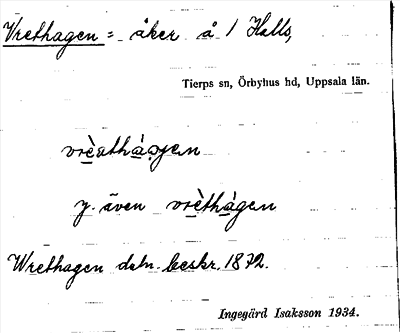 Vrethagen = åker å 1 Halls,
Tierps sn, Örbyhus hd, Uppsala län.
y. även vrèthàgen
Wrethagen datn. beskr. 1872.
Ingegärd Isaksson 1934.